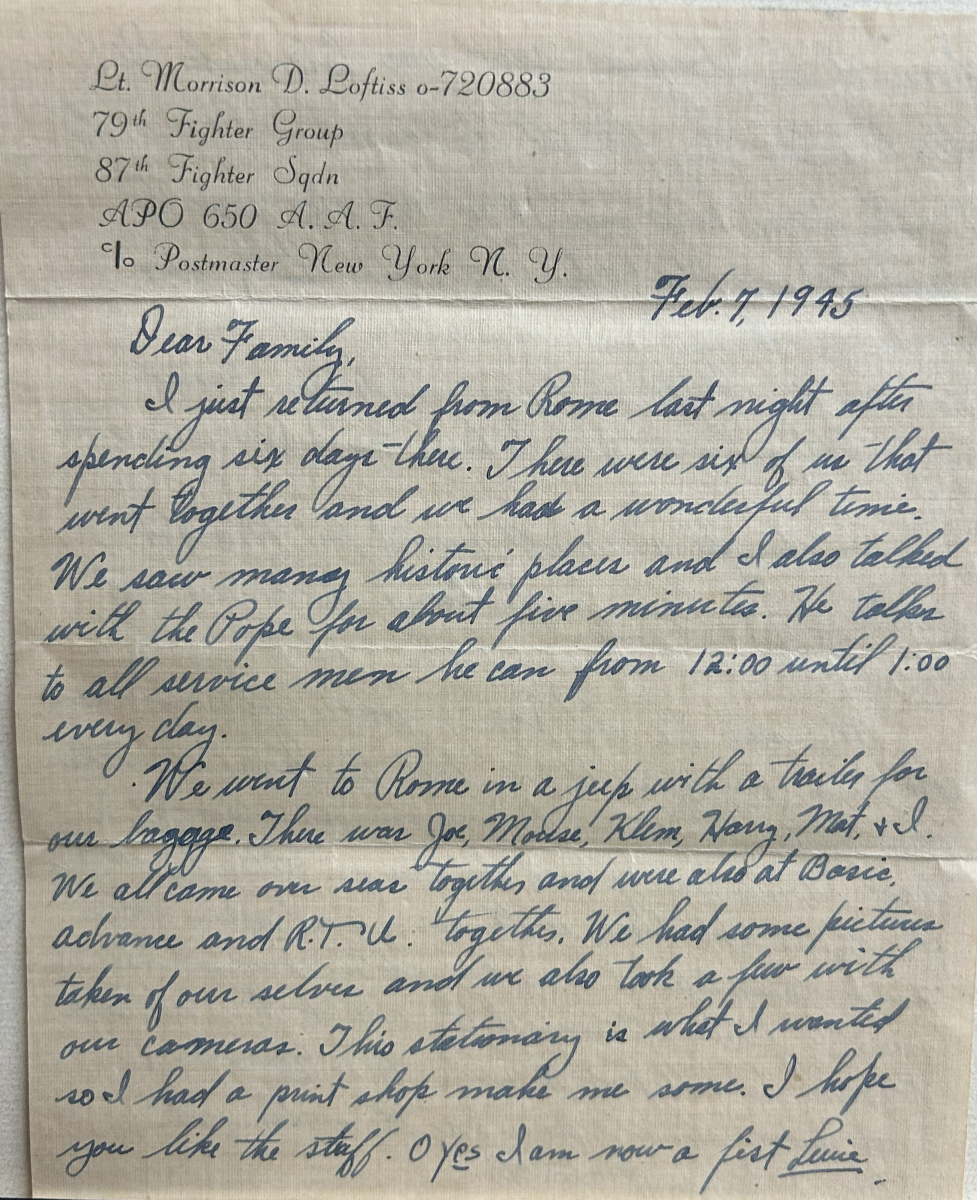 Lt. Morrison D. Loftiss o-720883
79th Fighter Group
87th Fighter Sqdn
APO 650 A. A. F.
c/o Postmaster New York N. Y.
Feb. 7, 1945
Dear Family,
I just returned from Rome last night after
spending six days there. There were six of us that
went together and we had a wonderful time.
We saw many historic places and I also talked
with the Pope for about five minutes. He talks
to all service men he can from 12:00 until 1:00
every day.
We went to Rome in a jeep with a trailer for
our baggage. There was Joe, Mouse, Klem, Harry, Mat, + I.
We all came over seas together and were also at Basic,
advance and R.T.U. together. We had some pictures
taken of our selves and we also took a few with
our cameras. This stationary is what I wanted
so I had a print shop make me some. I hope
you like the stuff. O yes I am now a fist Luie.